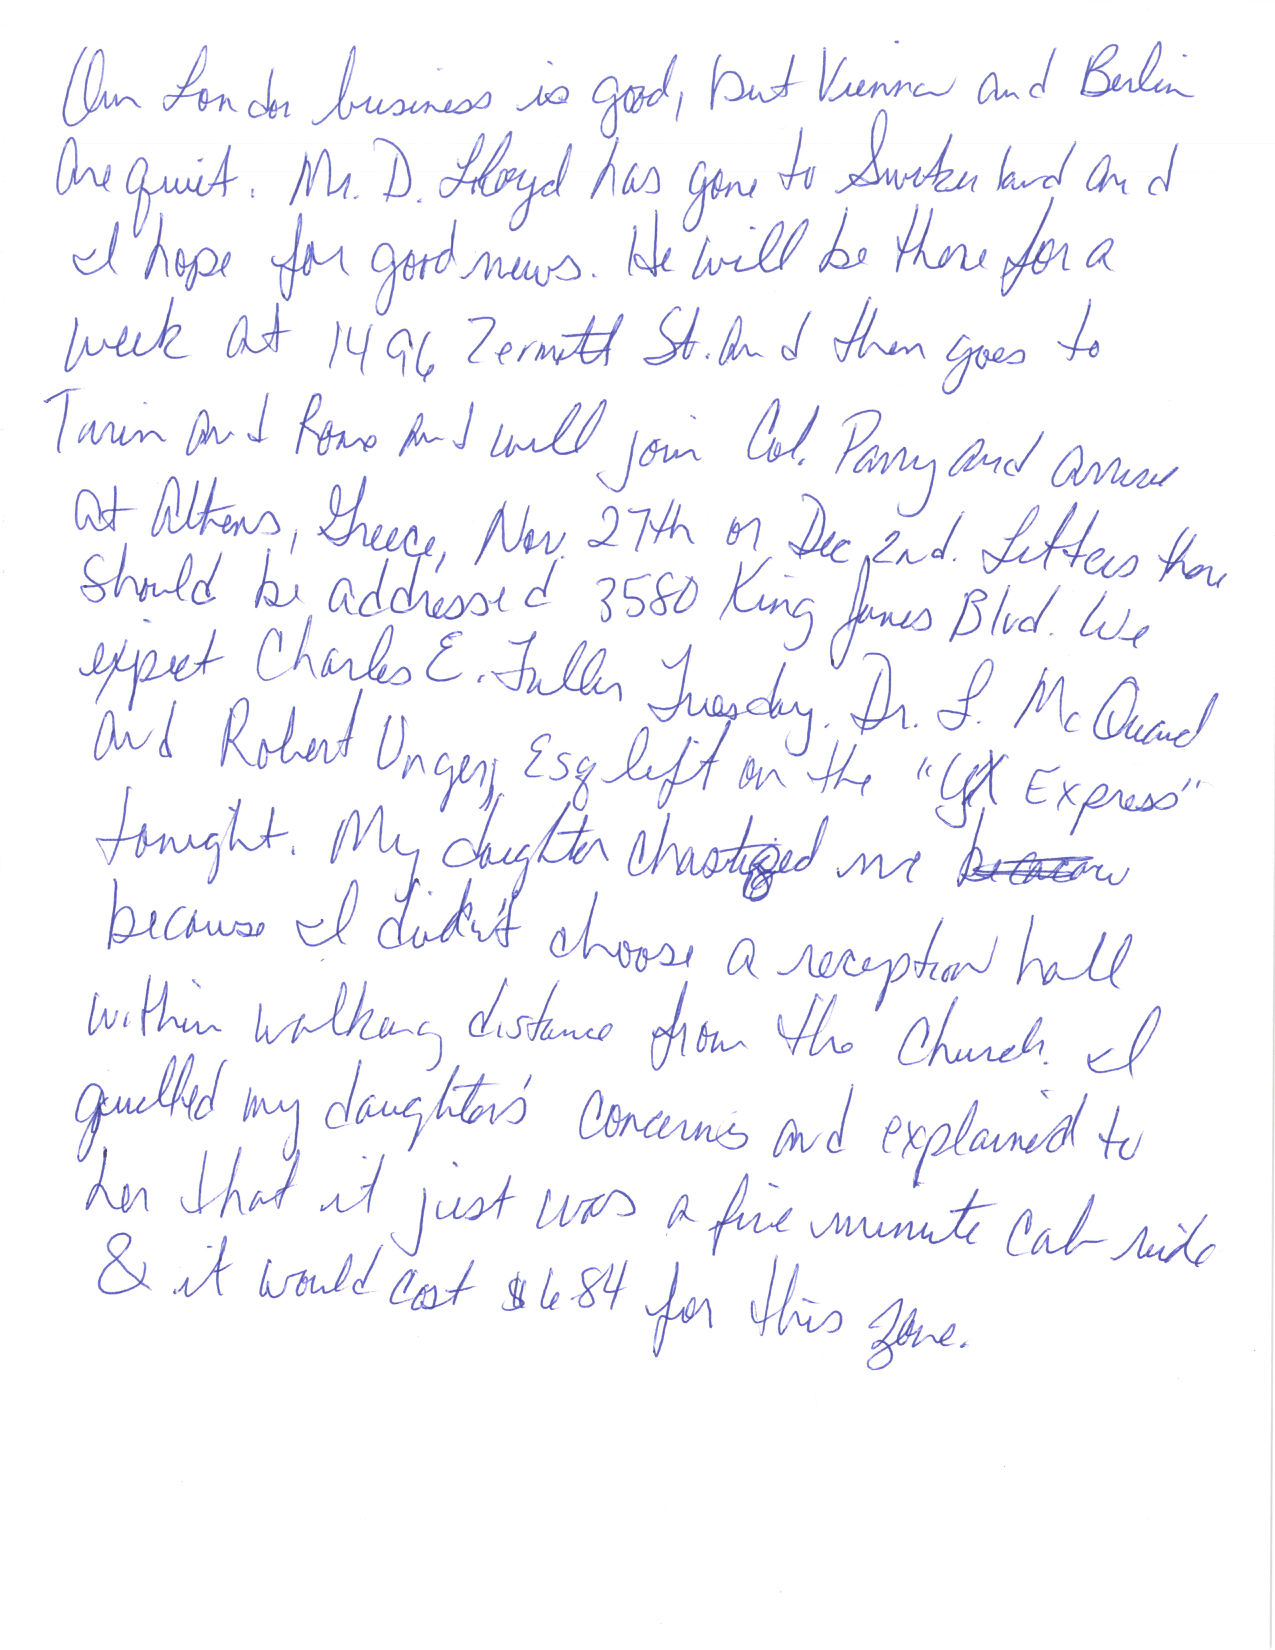 Our London business is good, but Vienna and Berlin
are quiet. Mr. D. Lloyd has gone to Switzerland and
I hope for good news. He will be there for a
week at 1496 Zermott St. and then goes to
Turin and Rome and will join Col. Parry and arrive
at Athens, Greece, Nov. 27th or Dec 2nd. Letters there
should be addressed 3580 King James Blvd. We
expect Charles E. Fuller Tuesday. Dr. L. McQuaid
and Robert Unger, Esq left on the "YX Express"
tonight. My daughter chastized me
because I didn't choose a reception hall
within walking distance from the church. I
quelled my daughter's concerns and explained to
her that it just was a five minute cab ride
& it would cost $684 for this zone.